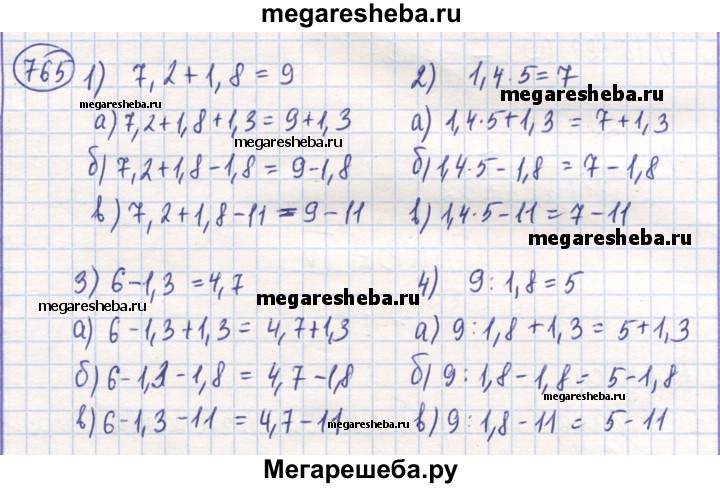 megaresheba.ru
765 1) 7,2+1,8=9
megaresheba.ru
а) 7,2+1,8+1,3=9+1,3
megaresheba.ru
б) 7,2+1,8-1,8=9-1,8
в) 7,2+1,8-11=9-11
2) 1,4·5=7
megaresheba.ru
а) 1,4·5+1,3=7+1,3
б) 1,4·5-1,8=7-1,8
в) 1,4·5-11=7-11
megaresheba.ru
3) 6-1,3=4,7
megaresheba.ru
megaresheba.ru
а) 6-1,3+1,3=4,7+1,3
б) 6-1,3-1,8=4,7-1,8
в) 6-1,3-11=4,7-11
megaresheba.ru
4) 9:1,8=5
а) 9:1,8+1,3=5+1,3
б) 9:1,8-1,8=5-1,8
megaresheba.ru
в) 9:1,8-11=5-11
Мегарешеба.ру